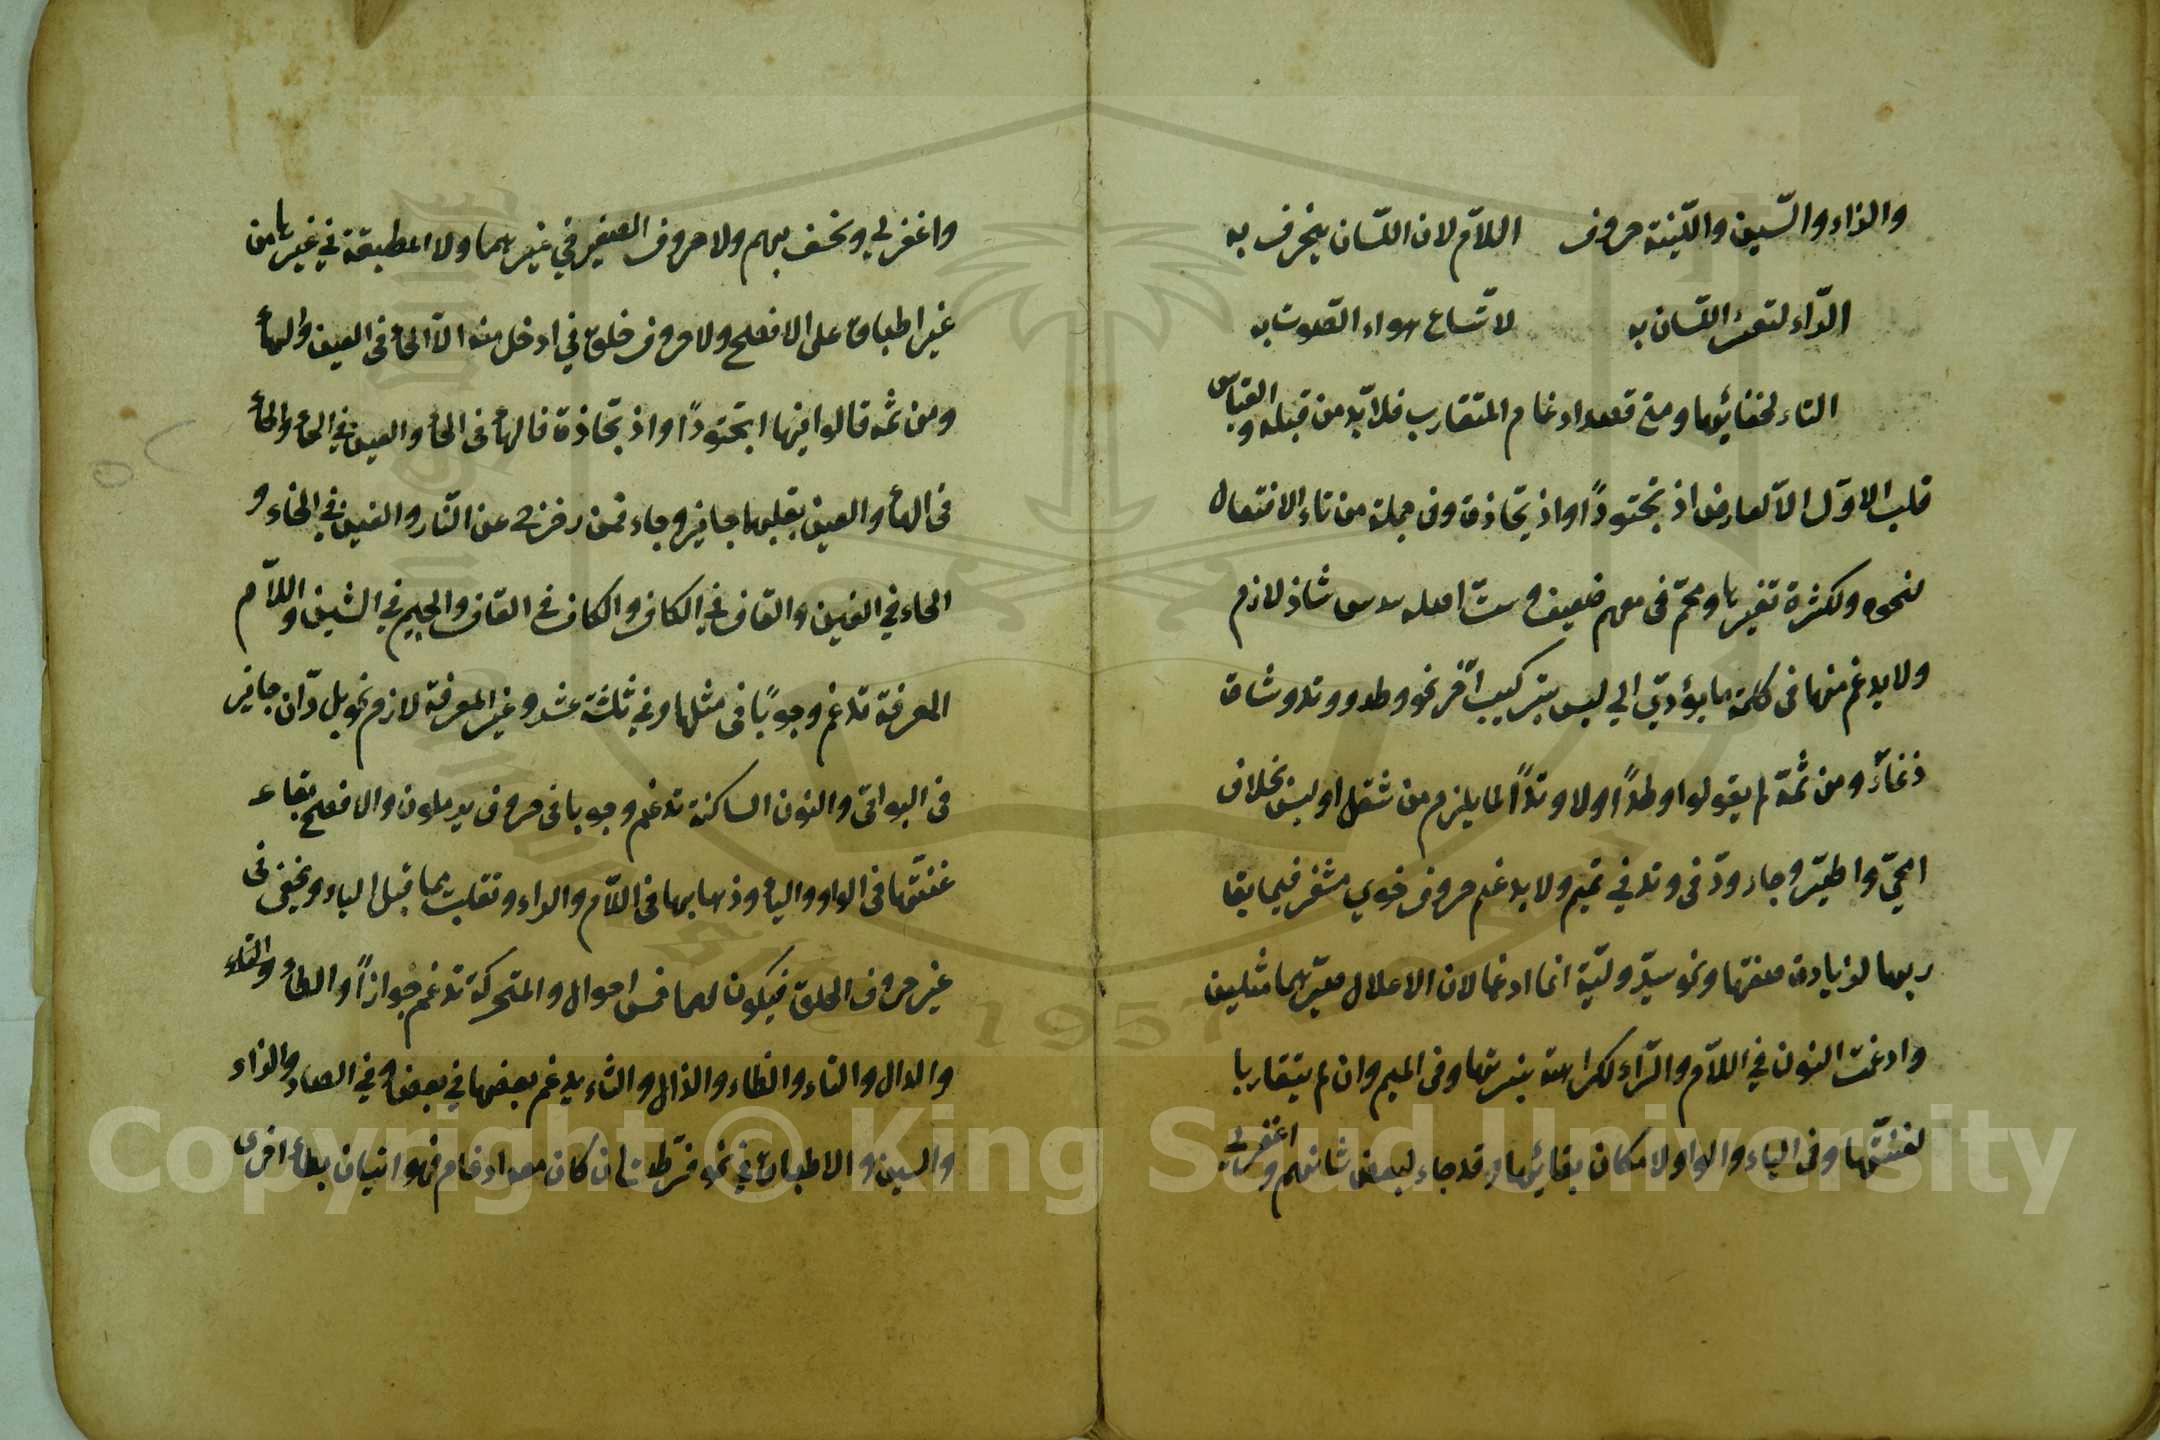 والزاء والسّين واللّينة حروف اللاّم لان اللسّان ينحرف به
الرّاء لتعثر اللسّان به لاتّساع هواء الصّوت به
التاء لخفائها ومتى قصد ادغام المتقارب فلابّد من قبله والقياس
قلب الاوّل الاّ لعارض اذ بحتودًا واذ بحّاذة وفي جملة من تاء الافتعال
لنحوه ولكثرة تغيرها ومحّم في معهم ضعيف وستّ اصله سدس شاذ لازم
ولا يدغم منها في كلمة ما يؤدي الي لبس بتركيب آخر نحو وطد ووتد وشاة
زنمأ ومن ثمّة لم يقولوا وطدًا ولا وتدًا لما يلزم من ثقل او لبس بخلاف
امّحي واطيّر وجاء ودّ في وتد في تميم ولا يدغم حروف ضوي مشفر فيما يقا
ربها لزيادة صفتها ونحو سيّد وليّة انما ادغما لان الاعلال صيّرهما مثلين
وادغمت النون في اللاّم والرّاء لكراهة نبرتها وفي الميم وان لم يتقاربا
لغنتّها وفي الياء والواو لامكان بقائها وقد جاء لبعض شانهم واغفرلي
واغفر لي ونخسف بهم ولا حروف الصفير في غيرهما ولا المطبقة في غيرها من
غير اطباق على الافصح ولا حروف خلق في ادخل منه الاّ الحأ في العين والهأ
ومن ثمه قالوا فيها اذبحتودًا واذبحّاذة فالهأ في الحأ والعين في الحأ والحأ
في الهأ والعين بقلبهما جايز وجاء فمن زحزح عن النّار والغين في الخاء و
الخاء في الغين والقاف في الكاف والكاف في القاف والجيم في الشين واللاّم
المعرفة تدغم وجوبًا في مثلها وفي ثلثة عشر وغير المعرفة لازم نحو بل رّان جايز
في البواقي والنون الساكنة تدغم وجوبا في حروف يرملون والافصح بقاء
غنتّها في الواو واليأ وذهابها في اللاّم والراء وتقلب ميما قبل الباء وتخفى في
غير حروف الحلق فيكون لهما خمس احوال والمتحركة تدغم جوازًا والطأ والتاء
والدال والتاء والظاء والذال والثاء يدغم بعضها في بعض وفي الصاد والزاء
والسين والاطباق في نحو فرّطت ان كان معه ادغام فهو اتيان بطأ اخرى